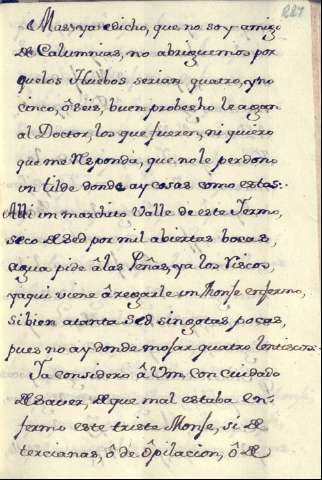 227
Mas ya è dicho, que no soy amigo
de Calumnias, no abriguemos por
que los Huebos serian quatro, y no
cinco, ô seis, buen probecho le agan
al Doctor, los que fueren, ni quiero
que me Responda, que no le perdono
un tilde donde ay cosas como estas:
Alli un marchito Valle de este Termo,
seco de sed por mil abiertas bocas,
agua pide â las Peñas, ya los Riscos,
yaqui viene â regarle un Monje enfermo,
si bien atanta sed, singotas pocas,
pues no ay donde mojar quatro
Ya considero â Vm. con cuidado
de saver, de que mal estaba en-
fermo este triste Monje, si de
tercianas, ô de ôpilacion, ô de